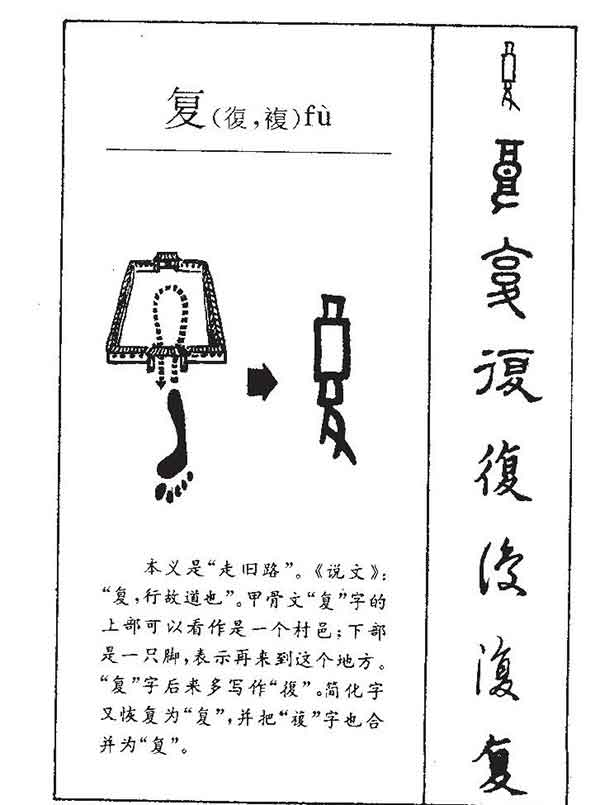 复(復,複)fù
本义是“走旧路”。《说文》:
“复,行故道也”。甲骨文“复”字的
上部可以看作是一个村邑;下部
是一只脚,表示再来到这个地方。
“复”字后来多写作“復”。简化字
又恢复为“复”,并把“複”字也合
并为“复”。
复
复
复
復
復
復
复